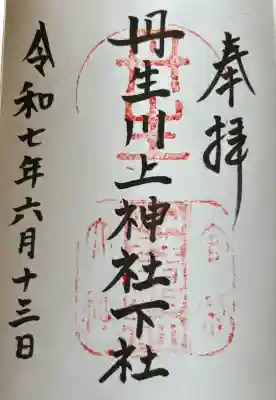 奉拝
丹生川上神社下社
令和七年六月十三日